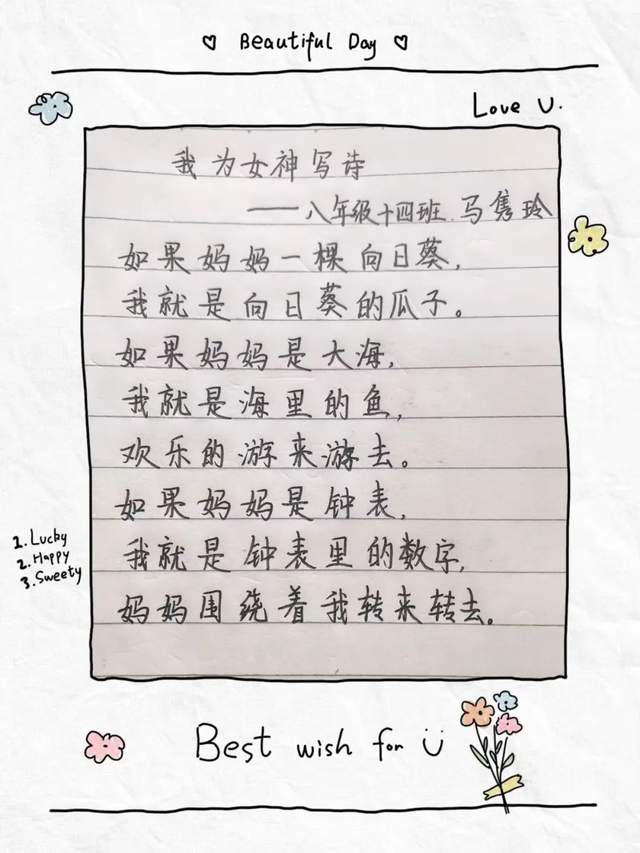 Beautiful Day
Love U.
我为女神写诗
——八年级十四班 马隽玲
如果妈妈一棵向日葵,
我就是向日葵的瓜子。
如果妈妈是大海,
我就是海里的鱼,
欢乐的游来游去。
如果妈妈是钟表,
我就是钟表里的数字,
妈妈围绕着我转来转去。
1. Lucky
2. Happy
3. Sweety
Best wish for U